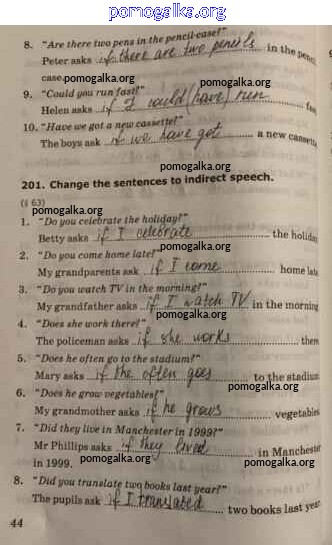 pomogalka.org
8. "Are there two pens in the pencil-case?"
Peter asks if there are two pencils in the pencil
case. pomogalka.org pomogalka.org
9. "Could you run fast?"
Helen asks if I could (have) run fas
10. "Have we got a new cassette?"
The boys ask if we have got a new cassette
pomogalka.org
201. Change the sentences to indirect speech.
(§ 63)
pomogalka.org
1. "Do you celebrate the holiday?"
Betty asks if I celebrate the holiday
pomogalka.org
2. "Do you come home late?"
My grandparents ask if I come home late
pomogalka.org
3. "Do you watch TV in the morning?"
My grandfather asks if I watch TV in the morning
pomogalka.org
4. "Does she work there?"
The policeman asks if she works there
pomogalka.org
5. "Does he often go to the stadium?"
Mary asks if he often goes to the stadium
pomogalka.org pomogalka.org
6. "Does he grow vegetables?"
My grandmother asks if he grows vegetables
pomogalka.org
7. "Did they live in Manchester in 1999?"
Mr Phillips asks if they lived in Manchester
in 1999. pomogalka.org pomogalka.org
8. "Did you translate two books last year?"
The pupils ask if I translated two books last year
44 pomogalka.org
pomogalka.org